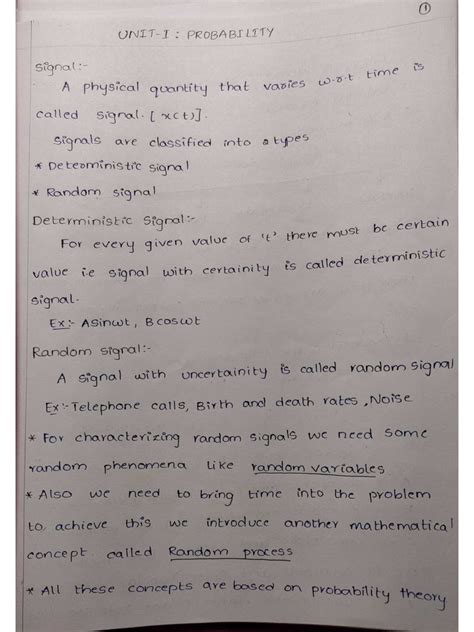 1
UNIT-I : PROBABILITY
Signal:-
A physical quantity that varies w.r.t time is
called signal. [x(t)].
Signals are classified into 2 types
* Deterministic signal
* Random signal
Deterministic signal:-
For every given value of 't' there must be certain
value i.e signal with certainity is called deterministic
signal.
Ex:- Asinwt, Bcoswt
Random signal:-
A signal with uncertainity is called random signal
Ex:- Telephone calls, Birth and death rates, Noise
* For characterizing random signals we need some
random phenomena like random variables
* Also we need to bring time into the problem
to achieve this we introduce another mathematical
concept called Random process
* All these concepts are based on probability theory